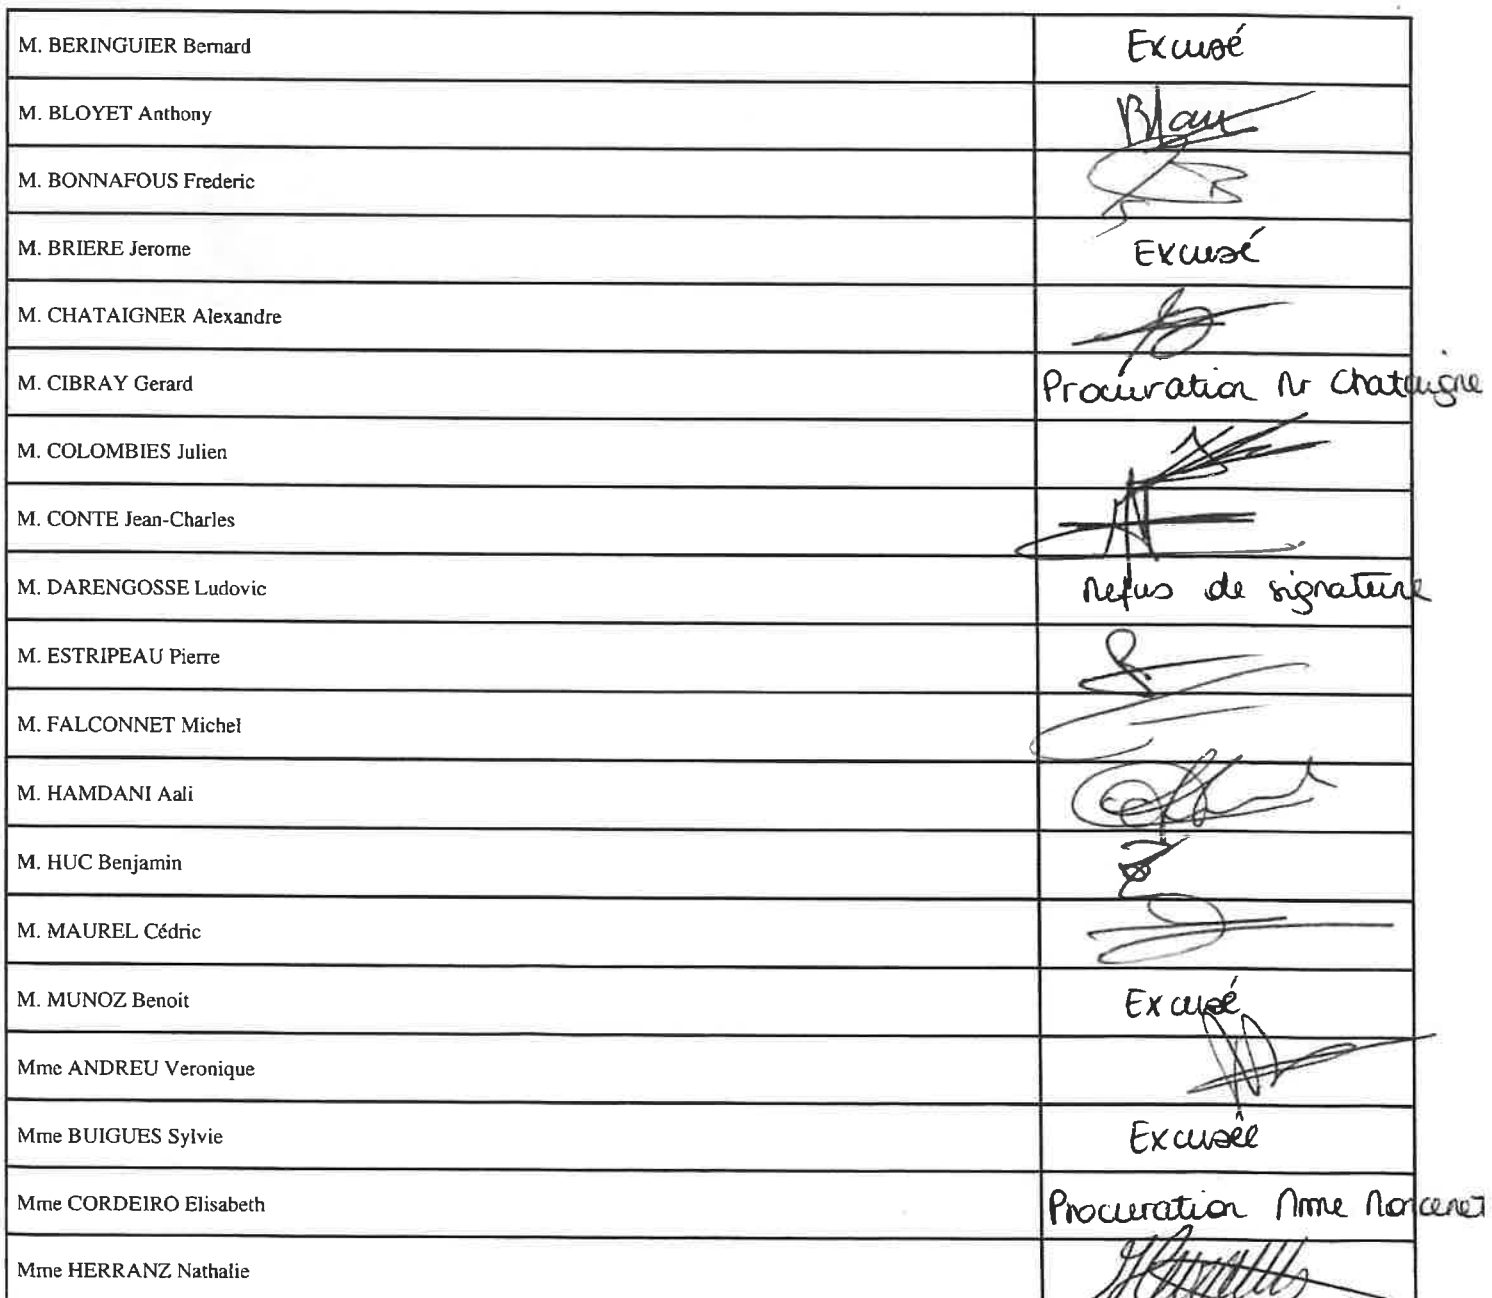 M. BERINGUIER Bernard Excusé
M. BLOYET Anthony
M. BONNAFOUS Frederic
M. BRIERE Jerome Excusé
M. CHATAIGNER Alexandre
M. CIBRAY Gerard Procuration Mr Chataigne
M. COLOMBIES Julien
M. CONTE Jean-Charles
M. DARENGOSSE Ludovic Refus de signature
M. ESTRIPEAU Pierre
M. FALCONNET Michel
M. HAMDANI Aali
M. HUC Benjamin
M. MAUREL Cédric
M. MUNOZ Benoit Excusé
Mme ANDREU Veronique
Mme BUIGUES Sylvie Excusée
Mme CORDEIRO Elisabeth Procuration Mme
Mme HERRANZ Nathalie